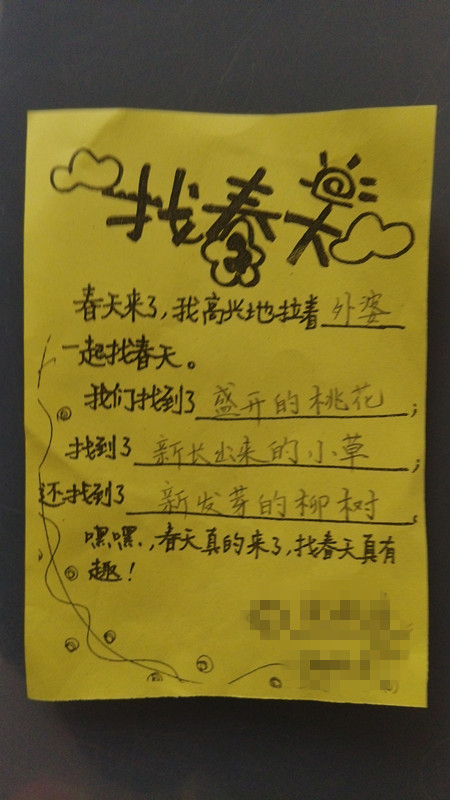 找春天
春天来了，我高兴地拉着外婆
一起找春天。
我们找到了盛开的桃花；
找到了新长出来的小草；
还找到了新发芽的柳树。
嘿嘿，春天真的来了，找春天真有
趣！